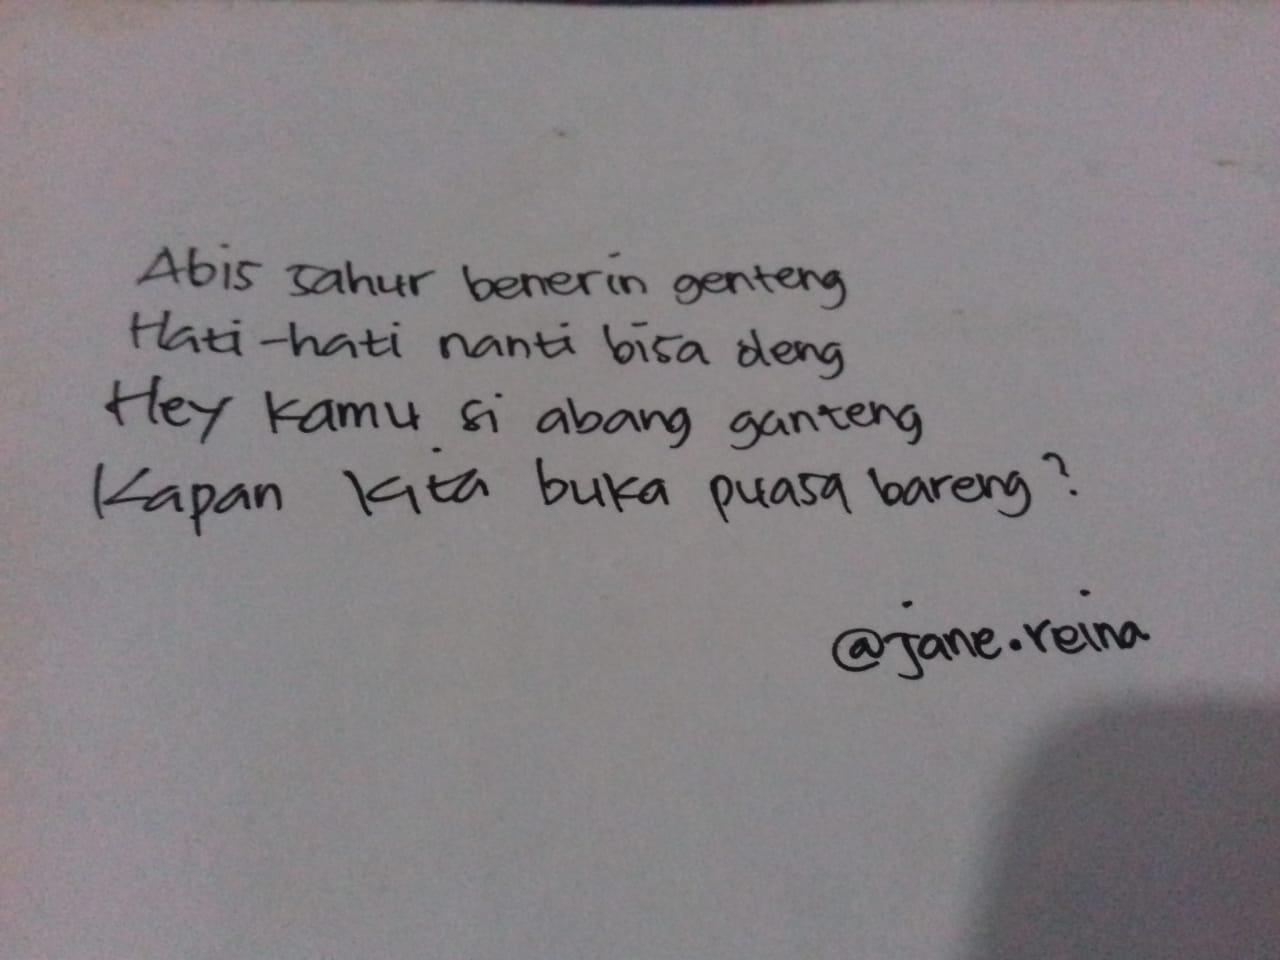 Abis sahur benerin genteng
Hati-hati nanti bisa deng
Hey kamu si abang ganteng
Kapan kita buka puasa bareng?
@jane.reina